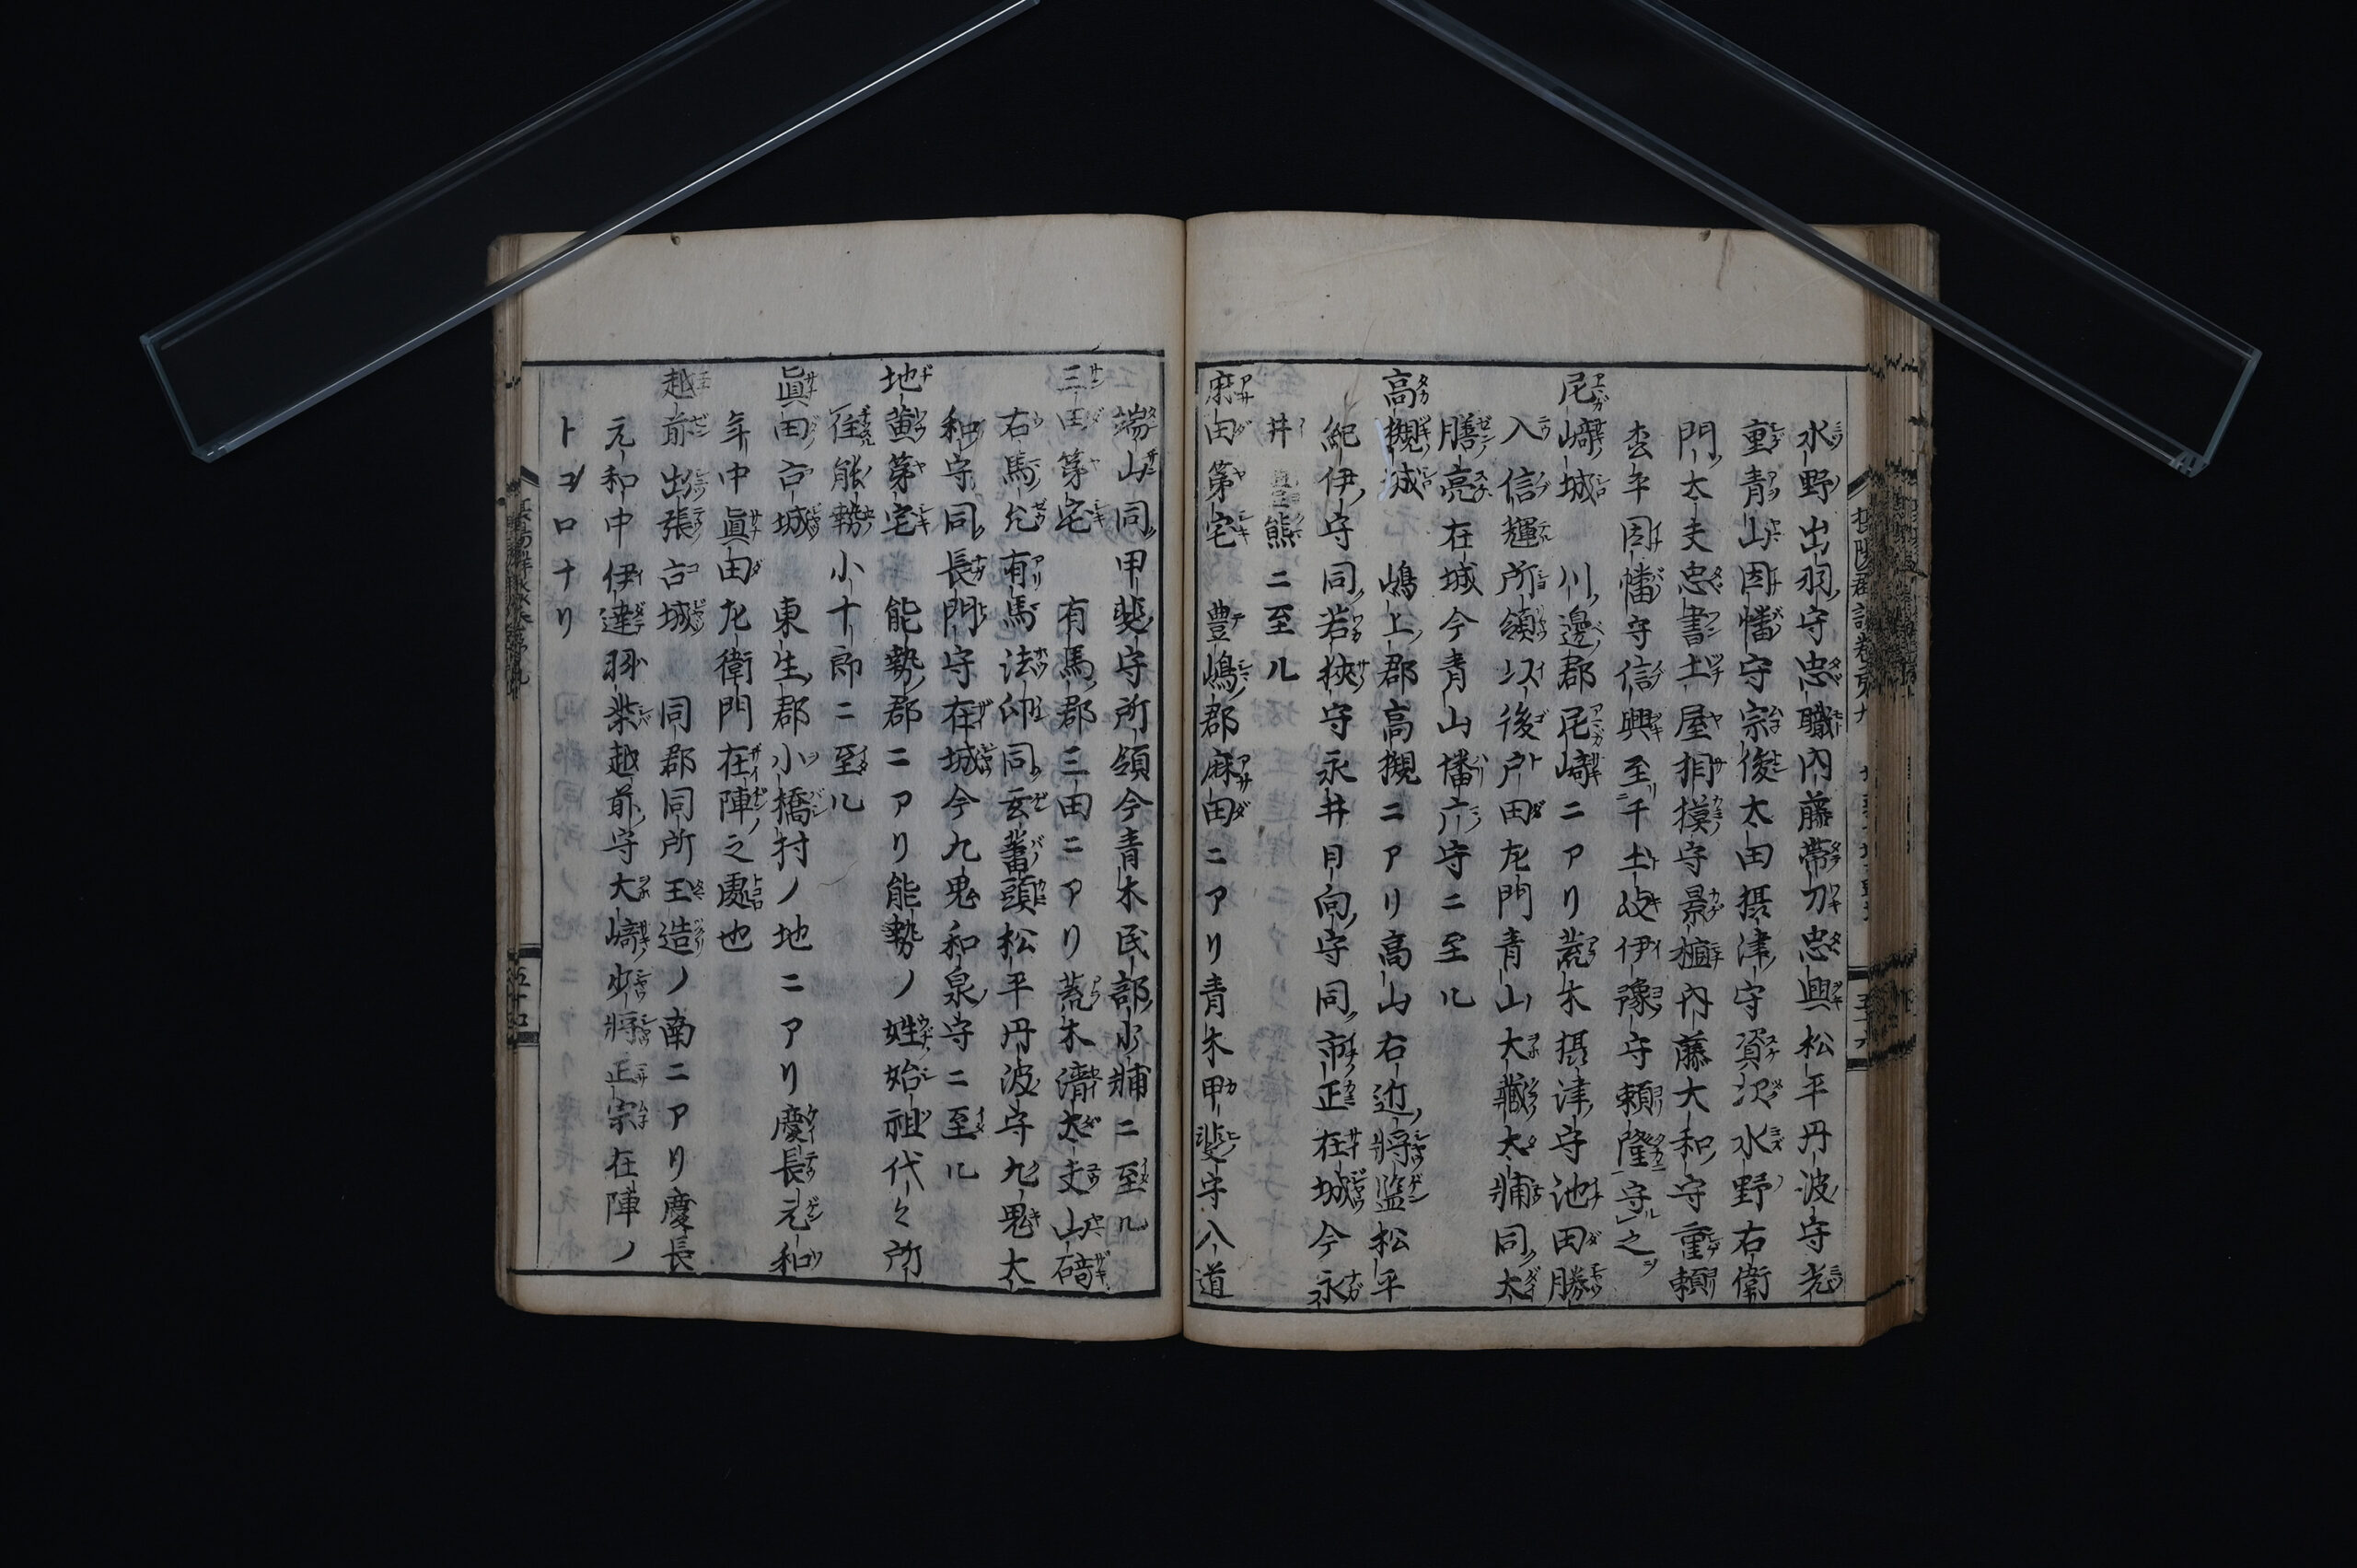 水野出羽守忠職内藤帯刀忠興松平丹波守光
重青山因幡守宗俊太田摂津守資次水野右衛
門太夫忠書土屋相摸守景櫨内藤大和守重頼
松平因幡守信興至千土岐伊豫守頼隆守之
尼崎城 川邊郡尼崎ニアリ荒木摂津守池田勝
入信輝所領以後戸田左門青山大蔵太輔同太
膳亮在城今青山播广守ニ至ル
高槻城 嶋上郡高槻ニアリ高山右近将監松平
紀伊守同若狭守永井日向守同市正在城今永
井 熊ニ至ル
麻田第宅 豊嶋郡麻田ニアリ青木甲斐守入道
端山同甲斐守所領今青木民部少輔ニ至ル
三田第宅 有馬郡三田ニアリ荒木清太夫山碕
右馬允有馬法印同玄蕃頭松平丹波守九鬼大
和守同長門守在城今九鬼和泉守ニ至ル
地黄第宅 能勢郡ニアリ能勢ノ姓始祖代々所
住能勢小十郎ニ至ル
眞田古城 東生郡小橋村ノ地ニアリ慶長元和
年中眞田左衛門在陣之處也
越前出張古城 同郡同所玉造ノ南ニアリ慶長
元和中伊達羽柴越前守大崎少将正宗在陣ノ
トコロナリ